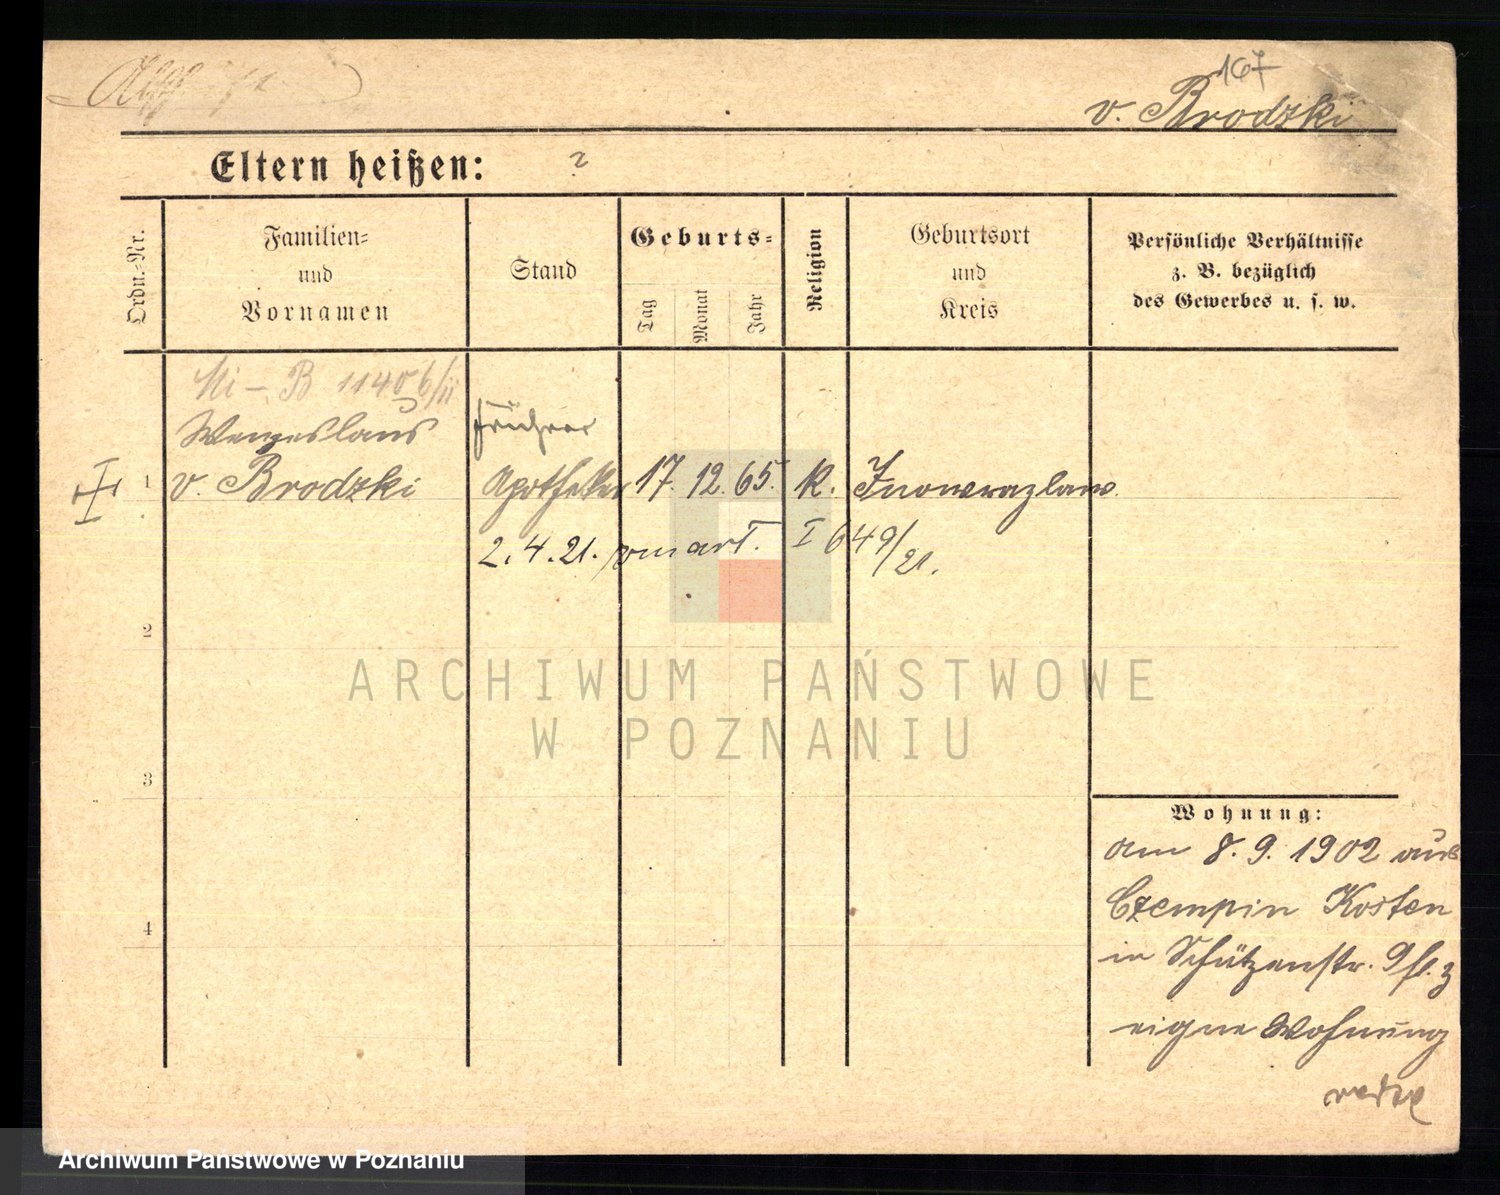 167
v. Brodzki
Eltern heißen: ?
Ordn.-Nr.
Familien-
und
Vornamen
Stand
Geburts-
Tag
Monat
Jahr
Religion
Geburtsort
und
Kreis
Persönliche Verhältnisse
z. B. bezüglich
des Gewerbes u. s. w.
Mi - B 11406/ii
Wenzeslaus
früherer
1 v. Brodzki Apotheker 17. 12. 65. k. Inowrazlaw.
2. 4. 21. I 649/21.
2
3
4
Wohnung:
am 8. 9. 1902 aus
Czempin Kosten
in Schützenstr. 9
eigne Wohnung
ARCHIWUM PAŃSTWOWE
W POZNANIU
Archiwum Państwowe w Poznaniu